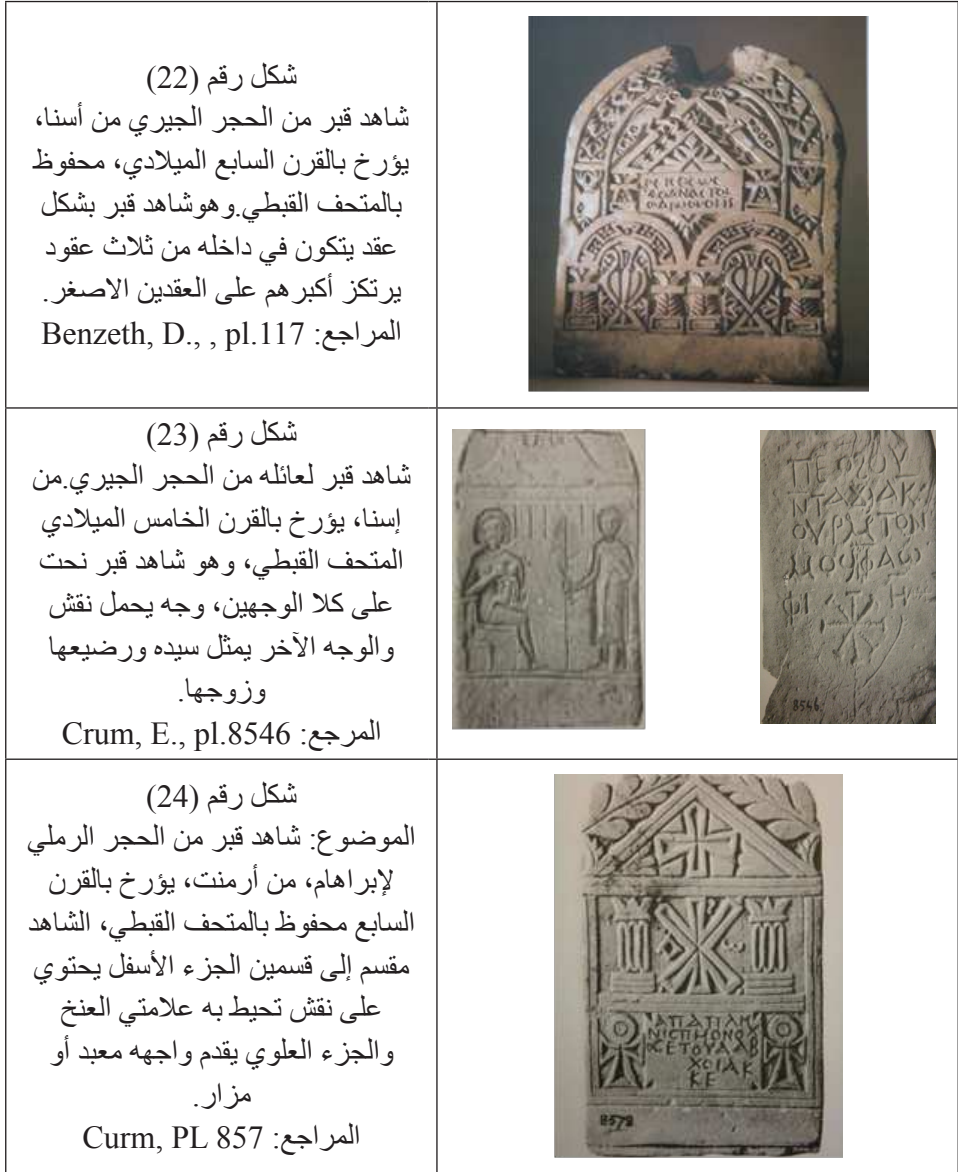 شكل رقم (22)
شاهد قبر من الحجر الجيري من أسنا،
يؤرخ بالقرن السابع الميلادي، محفوظ
بالمتحف القبطي.وهوشاهد قبر بشكل
عقد يتكون في داخله من ثلاث عقود
يرتكز أكبرهم على العقدين الاصغر.
المراجع: Benzeth, D., , pl.117
شكل رقم (23)
شاهد قبر لعائله من الحجر الجيري.من
إسنا، يؤرخ بالقرن الخامس الميلادي
المتحف القبطي، وهو شاهد قبر نحت
على كلا الوجهين، وجه يحمل نقش
والوجه الآخر يمثل سيده ورضيعها
وزوجها.
المرجع: Crum, E., pl.8546
8546
شكل رقم (24)
الموضوع: شاهد قبر من الحجر الرملي
لإبراهام، من أرمنت، يؤرخ بالقرن
السابع محفوظ بالمتحف القبطي، الشاهد
مقسم إلى قسمين الجزء الأسفل يحتوي
على نقش تحيط به علامتي العنخ
والجزء العلوي يقدم واجهه معبد أو
مزار.
المراجع: Curm, PL 857
ⲭⲟⲓⲁⲕ
ⲕⲉ
8578